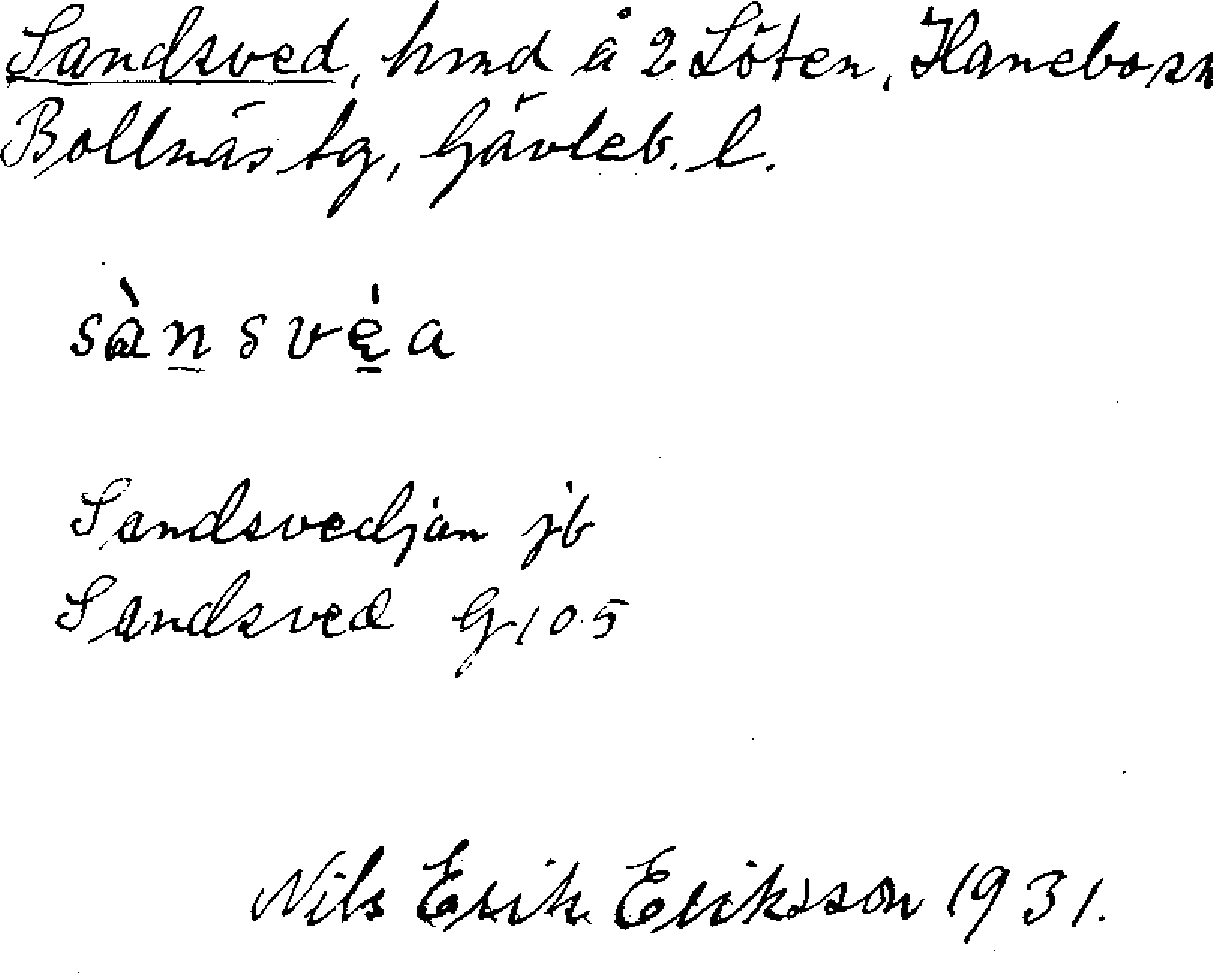 Sandsved, hmd å 2 Löten, Hanebo sn
Bollnäs tg, Gävleb. l.
sànsvę̀a
Sandsvedjan jb
Sandsved G 105
Nils Erik Eriksson 1931.